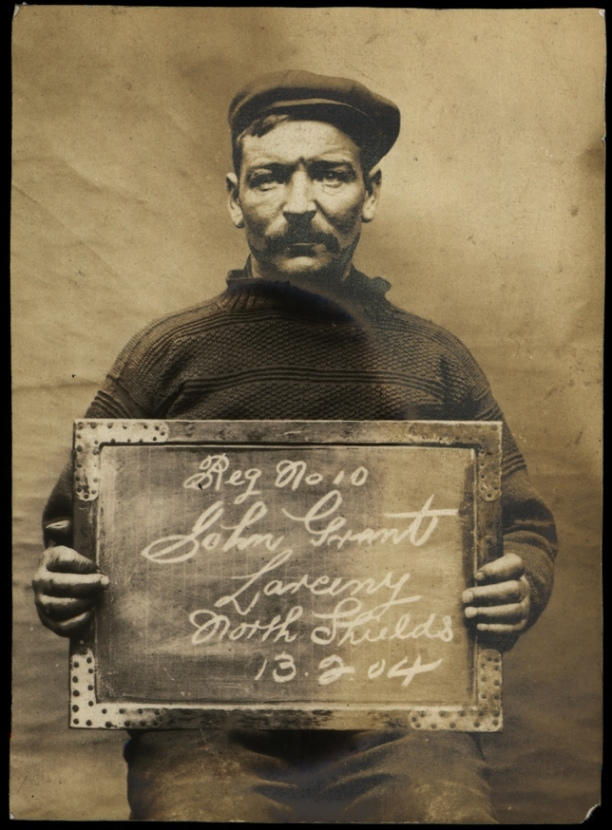 Reg No 10
John Grant
Larceny
North Shields
13.2.04